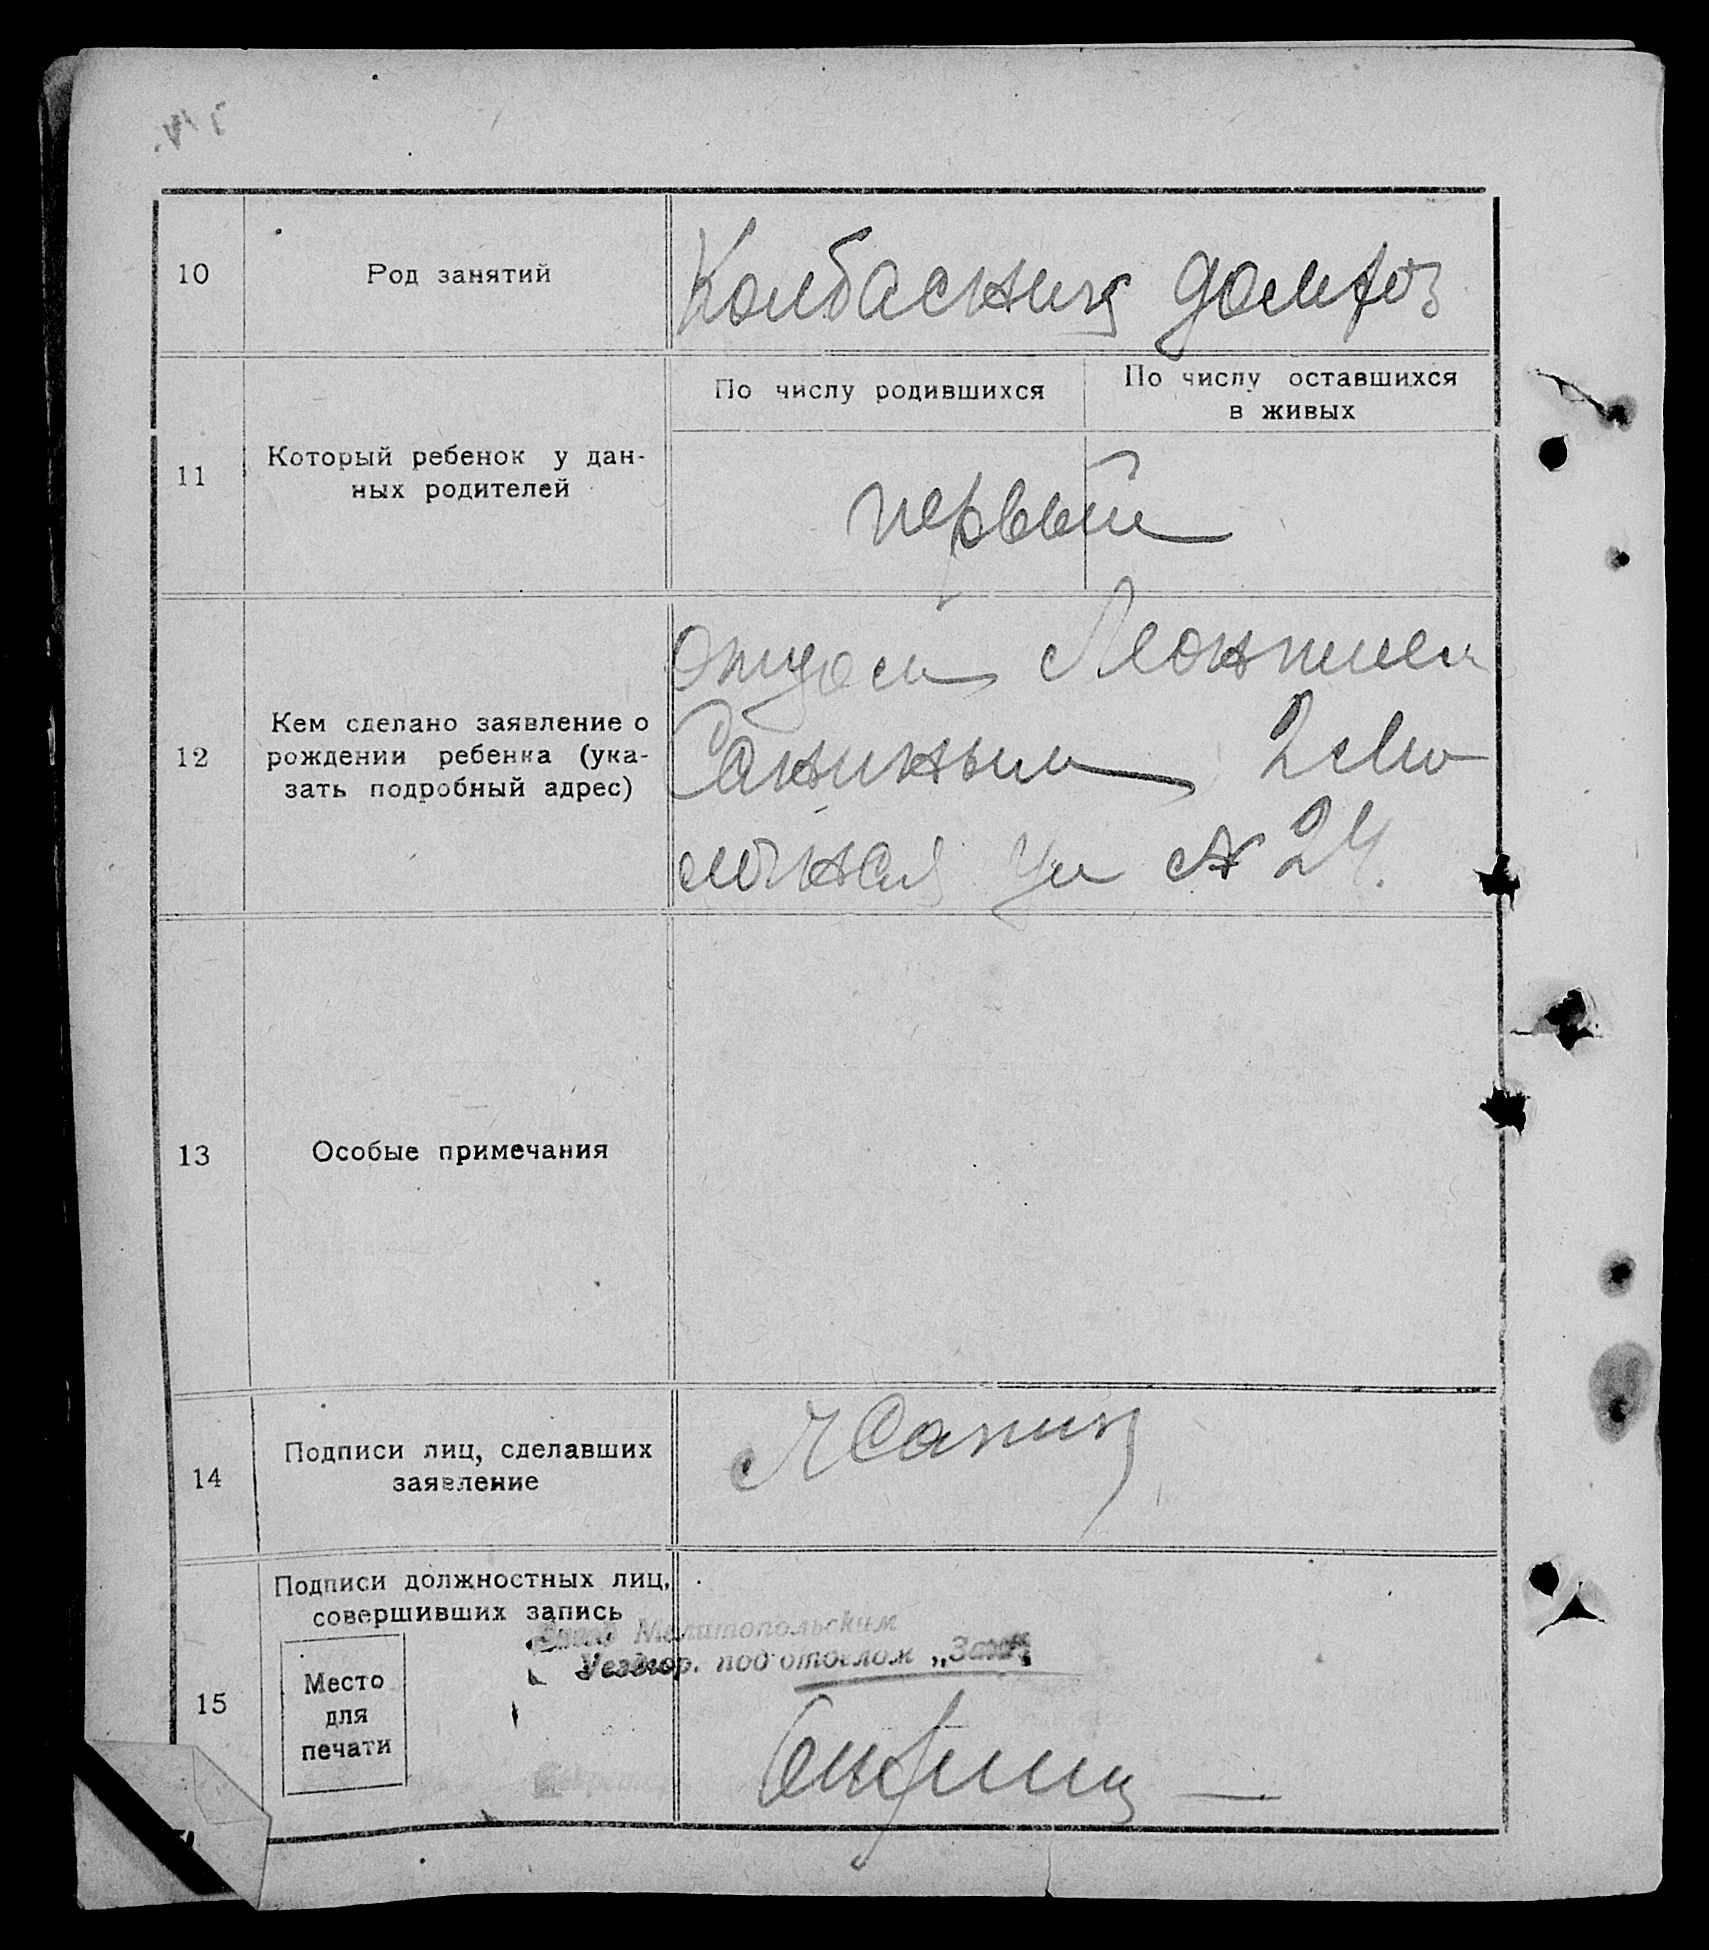 10
Род занятий
Колбасник домхоз
11
Который ребенок у дан-
ных родителей
По числу родившихся
По числу оставшихся
в живых
первый
12
Кем сделано заявление о
рождении ребенка (ука-
зать подробный адрес)
отцом Леонтием
Саниным
ул № 24.
13
Особые примечания
14
Подписи лиц, сделавших
заявление
ЛСанин
15
Подписи должностных лиц,
совершивших запись
Место
для
печати
Мелитопольским
Уездгор. под'отделом „Загс"